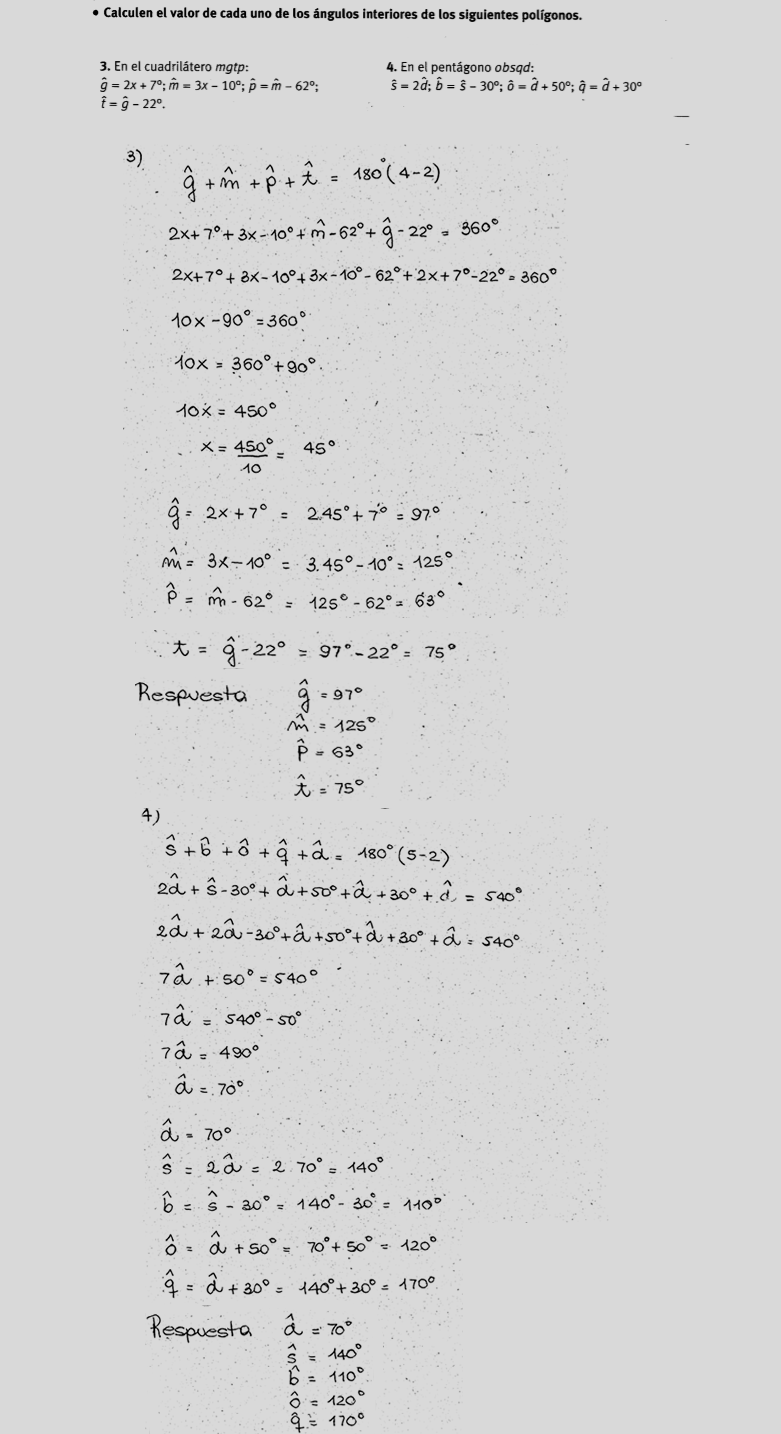 • Calculen el valor de cada uno de los ángulos interiores de los siguientes polígonos.
3. En el cuadrilátero mgtp:
ĝ = 2x + 7°; m̂ = 3x – 10°; p̂ = m̂ – 62°;
t̂ = ĝ – 22°.
4. En el pentágono obsqd:
ŝ = 2d̂; b̂ = ŝ – 30°; ô = d̂ + 50°; q̂ = d̂ + 30°
3)
ĝ + m̂ + p̂ + t̂ = 180°(4-2)
2x+7°+3x-10°+m̂-62°+ĝ-22° = 360°
2x+7°+3x-10°+3x-10°-62°+2x+7°-22°=360°
10x-90°=360°
10x = 360°+90°
10x = 450°
x = 450°/10 = 45°
ĝ = 2x+7° = 2.45°+7° = 97°
m̂ = 3x-10° = 3.45°-10° = 125°
p̂ = m̂-62° = 125°-62° = 63°
t = ĝ-22° = 97°-22° = 75°
Respuesta ĝ = 97°
m̂ = 125°
p̂ = 63°
t̂ = 75°
4)
ŝ + b̂ + ô + q̂ + d̂ = 180°(5-2)
2d̂ + ŝ-30°+d̂+50°+d̂+30°+d̂ = 540°
2d̂ + 2d̂-30°+d̂+50°+d̂+30°+d̂ = 540°
7d̂ + 50° = 540°
7d̂ = 540°-50°
7d̂ = 490°
d̂ = 70°
d̂ = 70°
ŝ = 2d̂ = 2 70° = 140°
b̂ = ŝ - 30° = 140°-30° = 110°
ô = d̂ + 50° = 70°+50° = 120°
q̂ = d̂+30° = 140°+30° = 170°
Respuesta d̂ = 70°
ŝ = 140°
b̂ = 110°
ô = 120°
q̂ = 170°